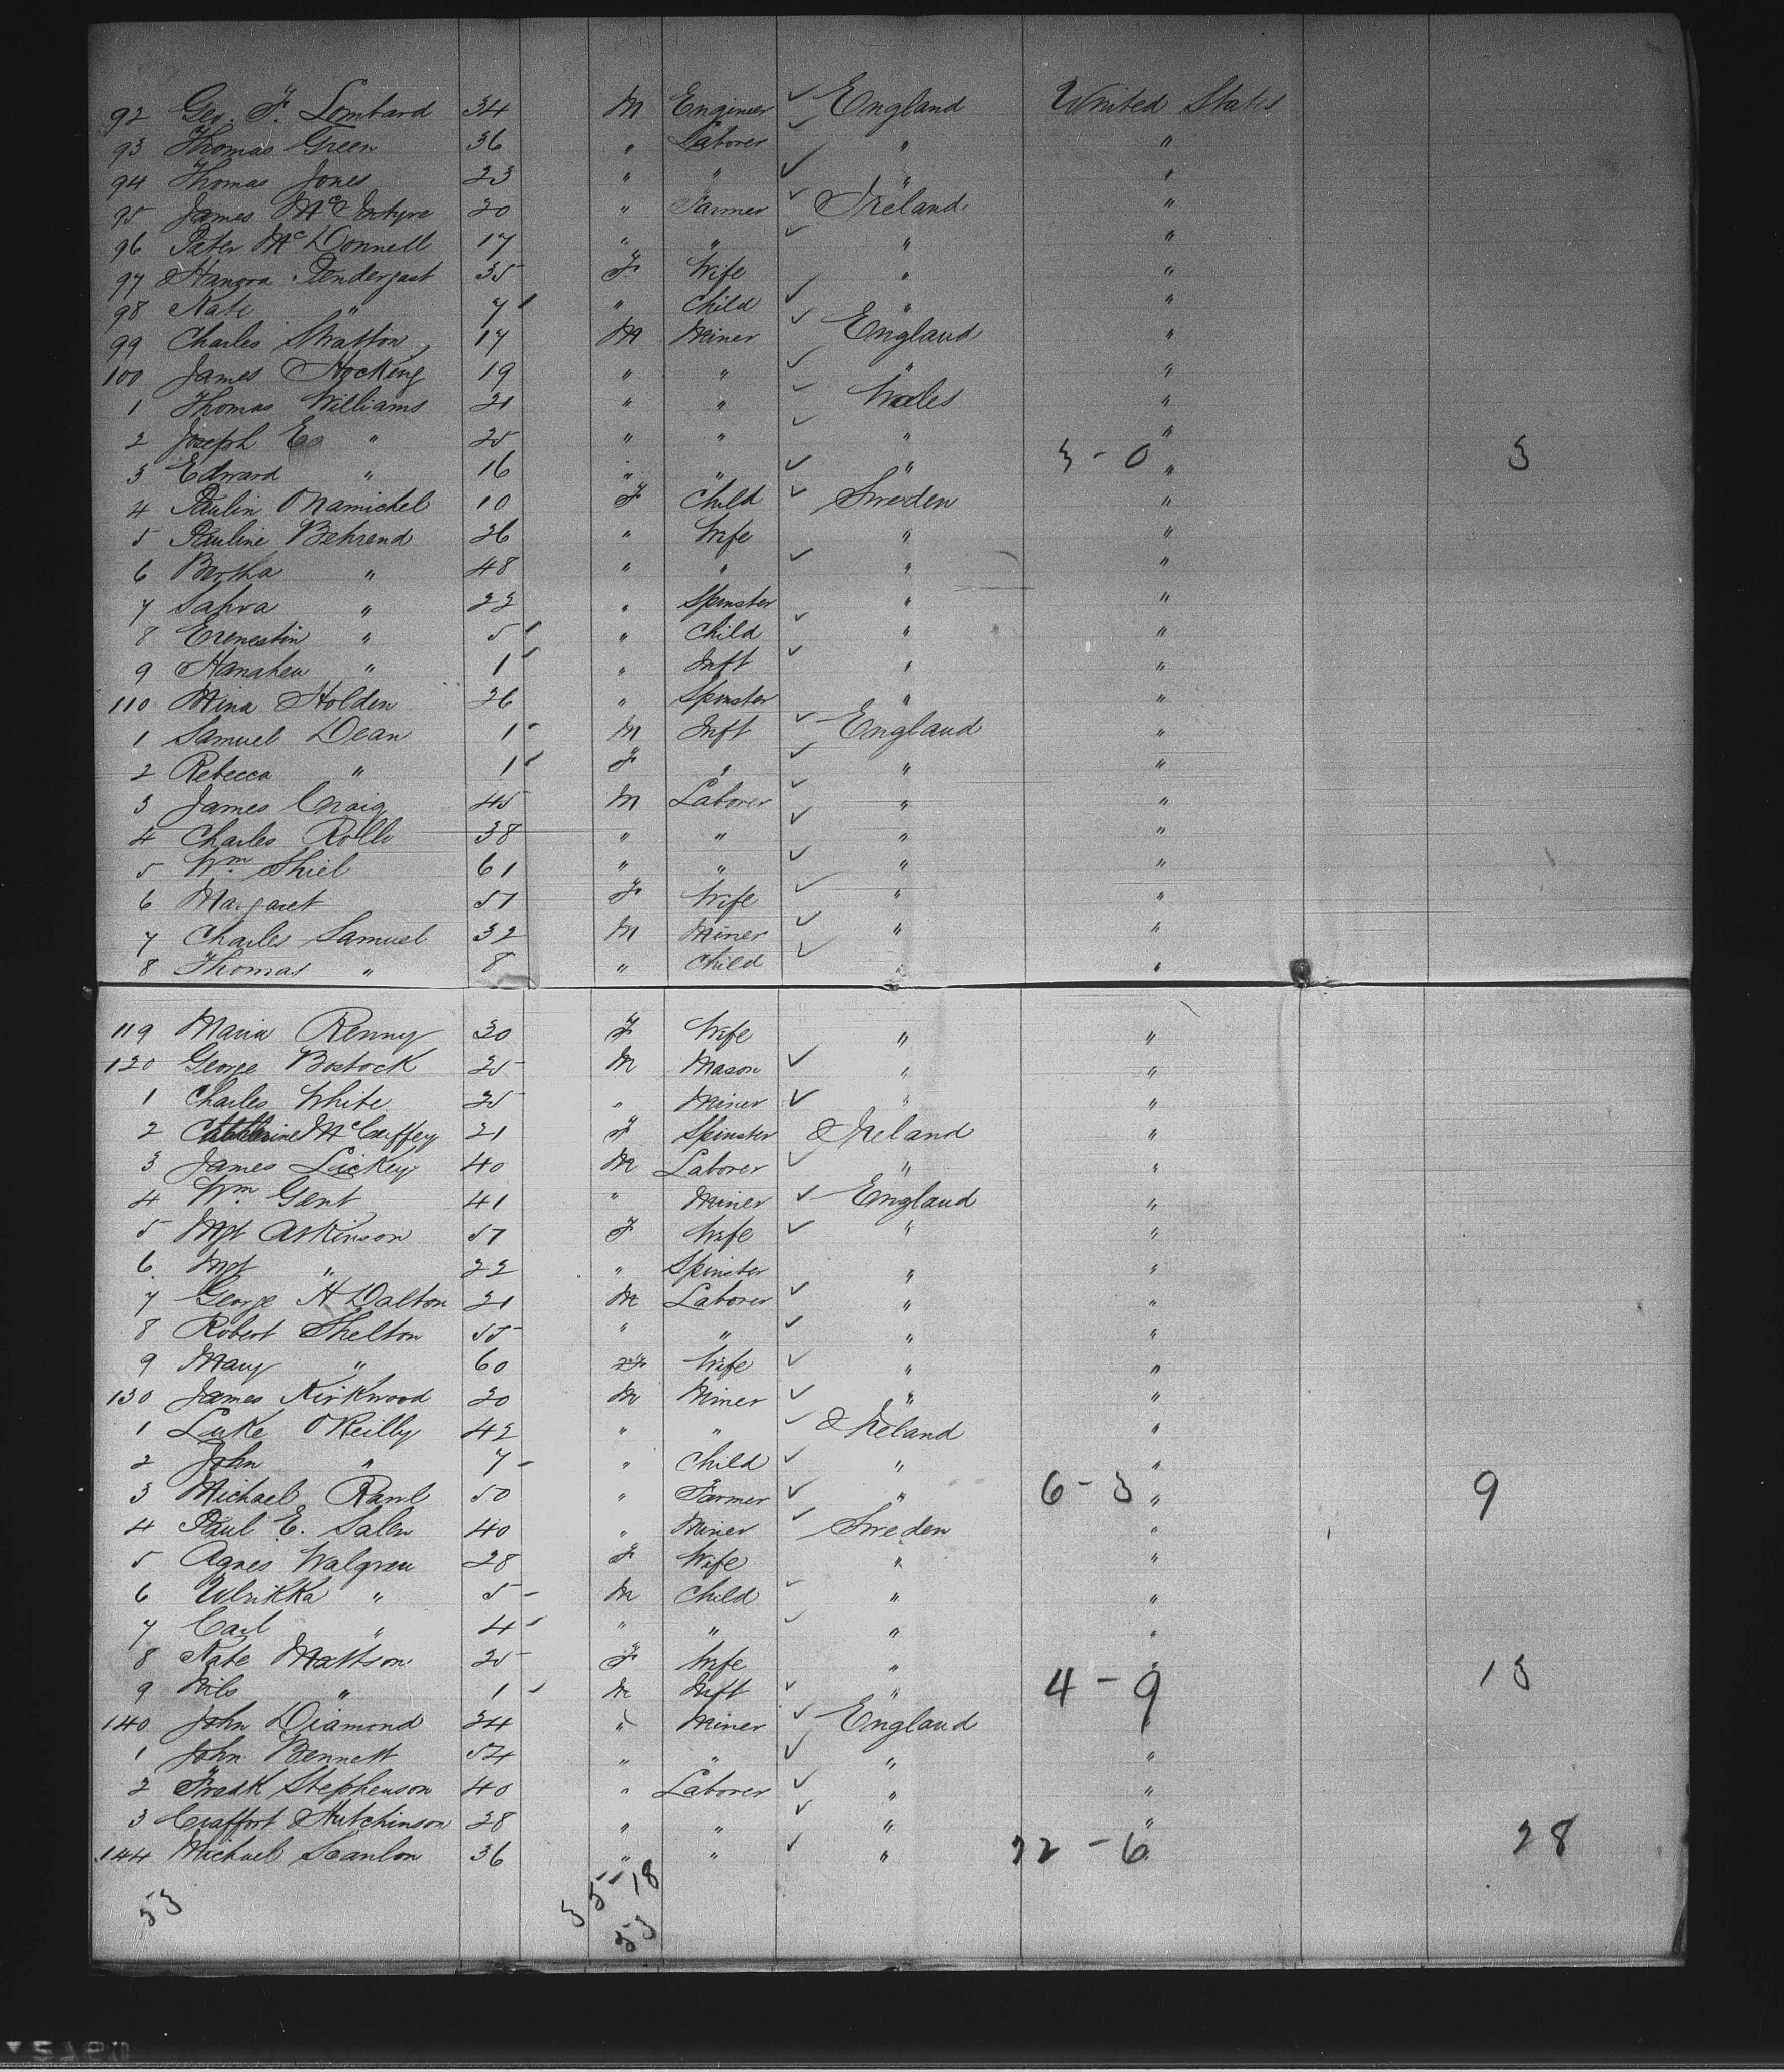 92 Geo. F. Lombard 34 M Engineer ✓ England United States
93 Thomas Green 36 " Laborer ✓ " "
94 Thomas Jones 23 " " ✓ " "
95 James McIntyre 20 " Farmer ✓ Ireland "
96 Peter McDonnell 17 " " ✓ " "
97 Hanora Pendergast 35 F Wife " "
98 Kate " 7 " Child ✓ " "
99 Charles Stratton 17 M Miner ✓ England "
100 James Hocking 19 " " ✓ " "
1 Thomas Williams 21 " " ✓ Wales "
2 Joseph E " 25 " " ✓ " "
3 Edward " 16 " " ✓ " 3-0 " 3
4 Paulin Onamichel 10 F Child ✓ Sweden "
5 Pauline Behrend 36 " Wife " "
6 Bertha " 48 " " ✓ " "
7 Sahra " 22 " Spinster " "
8 Erenestin " 5 " Child ✓ " "
9 Hanahen " 1 " Inft ✓ " "
110 Mina Holden 26 " Spinster " "
1 Samuel Dean 1 M Inft ✓ England "
2 Rebecca " 1 F " ✓ " "
3 James Craig 45 M Laborer ✓ " "
4 Charles Rollo 38 " " ✓ " "
5 Wm Shiel 61 " " ✓ " "
6 Margaret 51 F Wife ✓ " "
7 Charles Samuel 32 M Miner ✓ " "
8 Thomas " 8 " Child ✓ " "
119 Maria Renny 30 F Wife " "
120 George Bostock 25 M Mason ✓ " "
1 Charles White 25 " Miner ✓ " "
2 Catherine McCaffey 21 F Spinster Ireland "
3 James Lickey 40 M Laborer ✓ " "
4 Wm Gent 41 " Miner ✓ England "
5 Mgt Atkinson 51 F Wife ✓ " "
6 Mgt " 22 " Spinster " "
7 George H Dalton 21 M Laborer ✓ " "
8 Robert Shelton 55 " " ✓ " "
9 Mary " 60 F Wife ✓ " "
130 James Kirkwood 20 M Miner ✓ " "
1 Luke O'Reilly 42 " " ✓ Ireland "
2 John " 7 " Child ✓ " "
3 Michael 50 " Farmer ✓ " 6-3 " 9
4 Paul E. Salen 40 " Miner ✓ Sweden "
5 Agnes Walgren 28 F Wife " "
6 Ulrikka " 5 M Child ✓ " "
7 Carl " 4 " " ✓ " "
8 Kate Mattson 25 F Wife " "
9 Nils " 1 M Inft ✓ " 4-9 13
140 John Diamond 34 " Miner ✓ England "
1 John Bennett 54 " " ✓ " "
2 Fredk Stephenson 40 " Laborer ✓ " "
3 Craffort Hutchinson 28 " " ✓ " "
144 Michael Scanlon 36 " " ✓ " 22-6 " 28
53
35-18
53